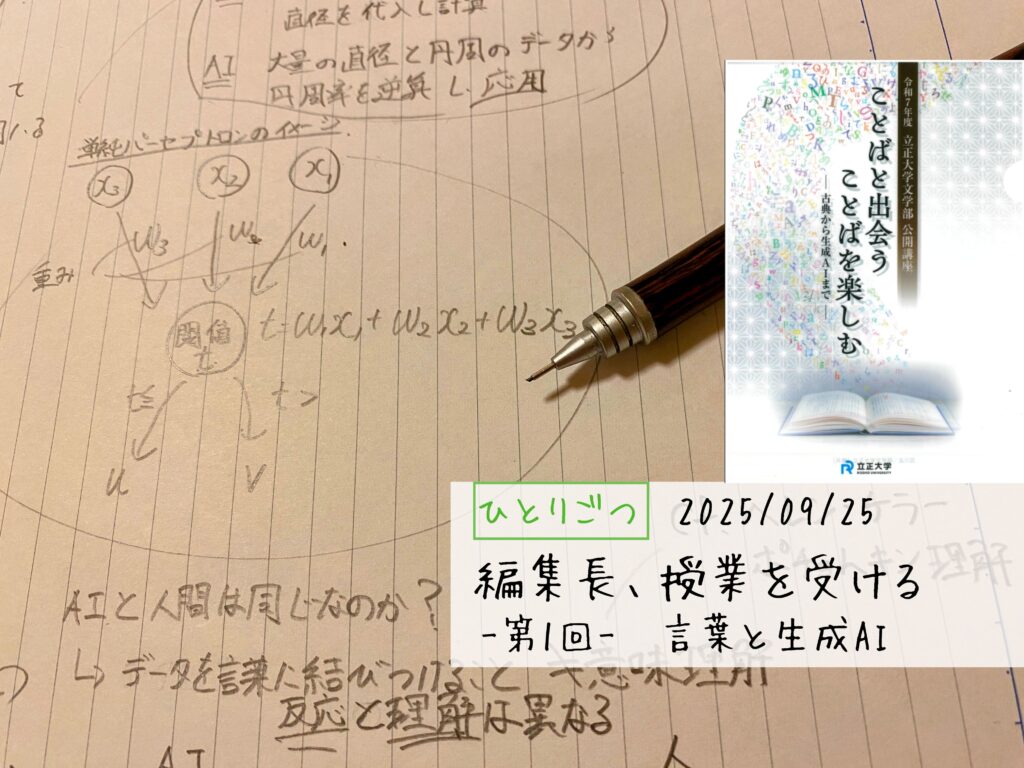 直径を代入し計算
AI 大量の直径と円周のデータから
円周率を逆算し、応用
単純パーセプトロンのイメージ
x3 x2 x1
w3 w2 w1
重み
閾値
t
t=w1x1+w2x2+w3x3
t≦ t>
u v
AIと人間は同じなのか?
↳データを言葉に結びつけること≠意味理解
反応と理解は異なる
AI 人
令和7年度 立正大学文学部 公開講座
ことばと出会う
ことばを楽しむ
―古典から生成AIまで―
立正大学
RISSHO UNIVERSITY
ひとりごつ 2025/09/25
編集長、授業を受ける
-第1回- 言葉と生成AI